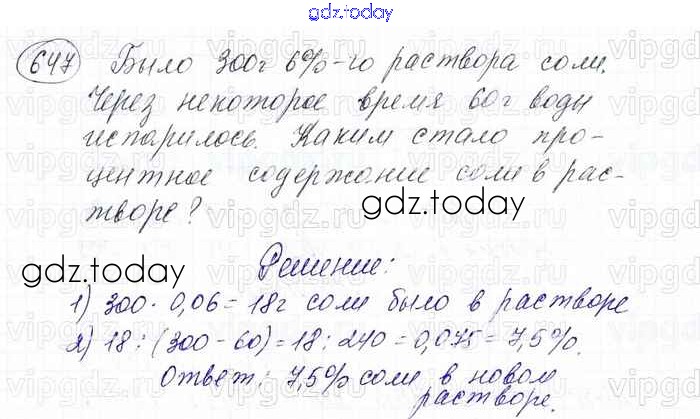 gdz.today
647 Было 300г 6%-го раствора соли.
Через некоторое время 60г воды
испарилось. Каким стало про-
центное содержание соли в рас-
творе?
gdz.today
gdz.today
Решение:
1) 300 · 0,06 = 18г соли было в растворе
2) 18 : (300 - 60) = 18 : 240 = 0,075 = 7,5%.
Ответ: 7,5% соли в новом
растворе.